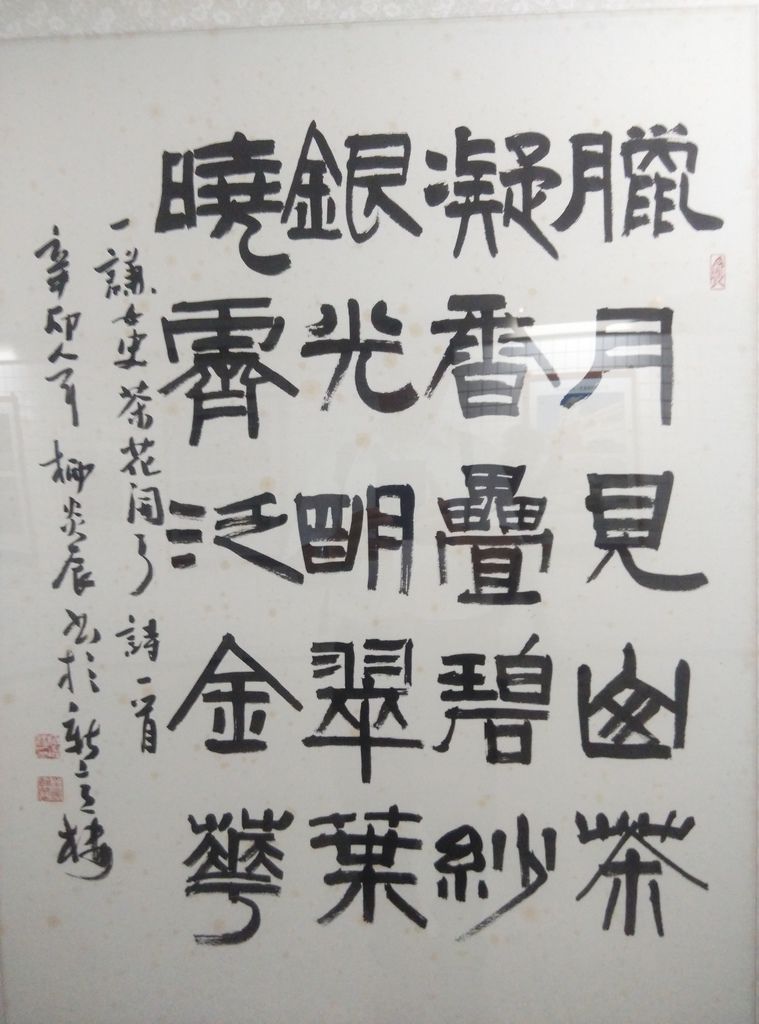 臘月見幽茶
凝香疊碧紗
銀光明翠葉
曉霽泛金華
一謙女史茶花開了詩一首
辛卯 柳炎辰書於新 樓